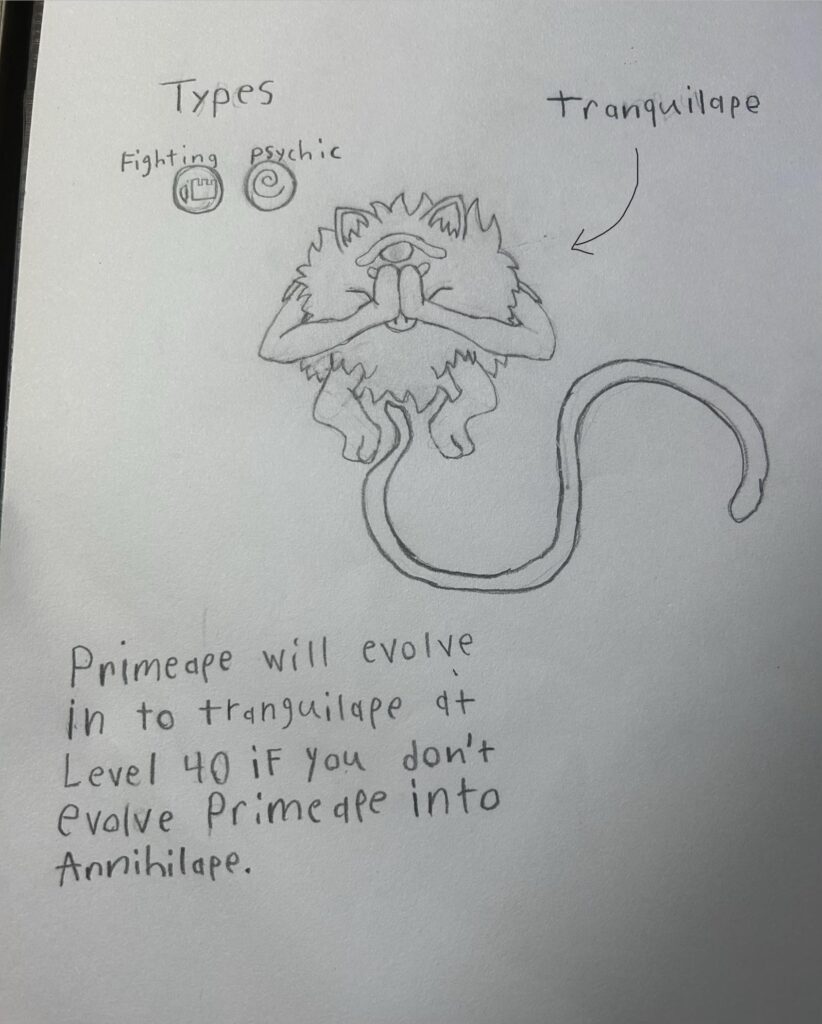 Types
tranquilape
Fighting psychic
Primeape will evolve
in to tranquilape at
Level 40 if you don't
evolve Primeape into
Annihilape.